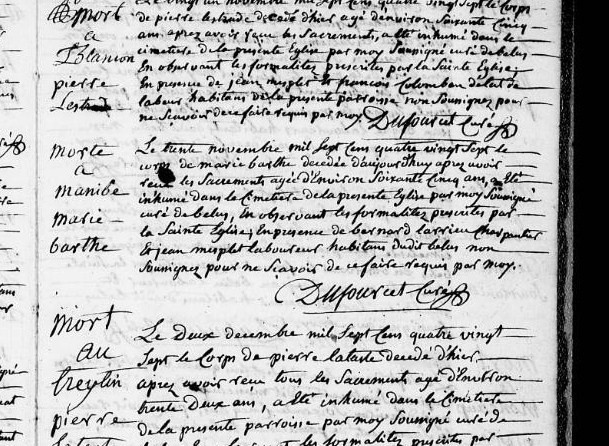 Le vingt un novembre mil sept cens quatre vingt sept le corps
mort
de pierre lestrade decedé d'hier agé d'environ soixante cinq
a
ans apres avoir reçu les sacrements, a eté inhumé dans le
cimetiere de la presente Eglise par moy soussigné curé de belus
En observant les formalites prescrites par la sainte Eglise,
pierre
En presence de jean mesplet et francois Colomban
labour habitans de la presente parroisse non soussignez pour
ne scavoir de ce faire requis par moy. Dufourcet Curé
morte
Le trente novembre mil sept cens quatre vingt sept le
a
corps de marie barthe decedée d'aujourd'huy apres avoir
manibe
reçu les sacrements agée d'environ soixante cinq ans, a eté
inhumé dans le Cimetiere de la presente Eglise par moy soussigné
marie
curé de belus, En observant les formalitez prescrites par
barthe
la sainte Eglise, En presence de bernard Larrieu charpantier
Et jean mesplet laboureur habitans dudit belus non
soussignez pour ne scavoir de ce faire requis par moy.
Dufourcet Curé
mort
Le Deux decembre mil sept cens quatre vingt
au
sept le Corps de pierre lataste decedé d'hier
apres avoir reçu tous les sacrements agé d'environ
pierre
trente deux ans, a eté inhumé dans le Cimetiere
de la presente parroisse par moy soussigné curé de
les formalitez prescrites par